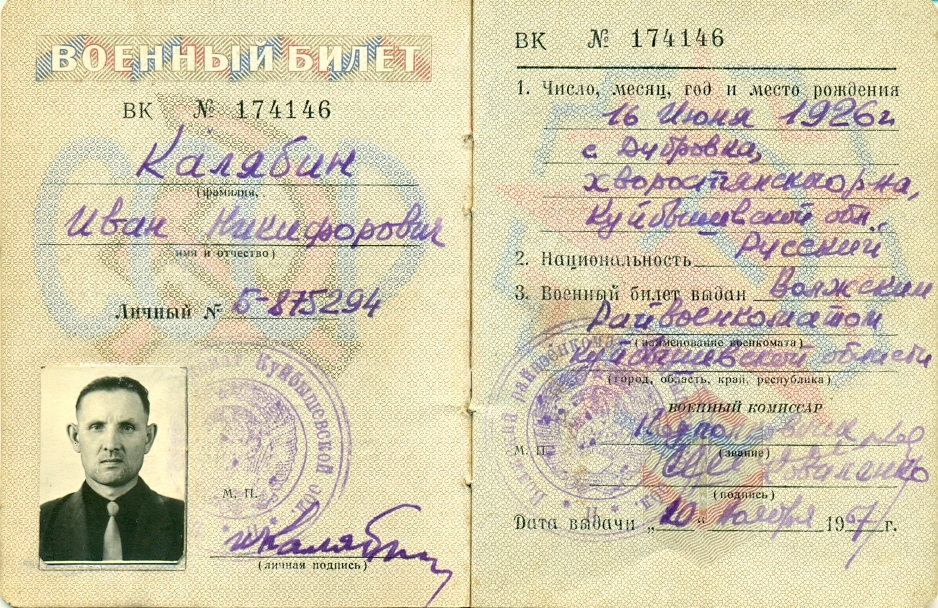 ВОЕННЫЙ БИЛЕТ
ВК № 174146
Калябин
(фамилия,
Иван Никифорович
имя и отчество)
Личный № Б-875294
М. П.
(личная подпись)
ВК № 174146
1. Число, месяц, год и место рождения
16 Июня 1926г
с. Дубровка,
Хворостянского р-на,
Куйбышевской обл.
2. Национальность Русский
3. Военный билет выдан Волжским
Райвоенкоматом
(наименование военкомата)
Куйбышевской области
(город, область, край, республика)
ВОЕННЫЙ КОМИССАР
М. П.
(звание)
(подпись)
Дата выдачи „10" Ноября 1967 г.